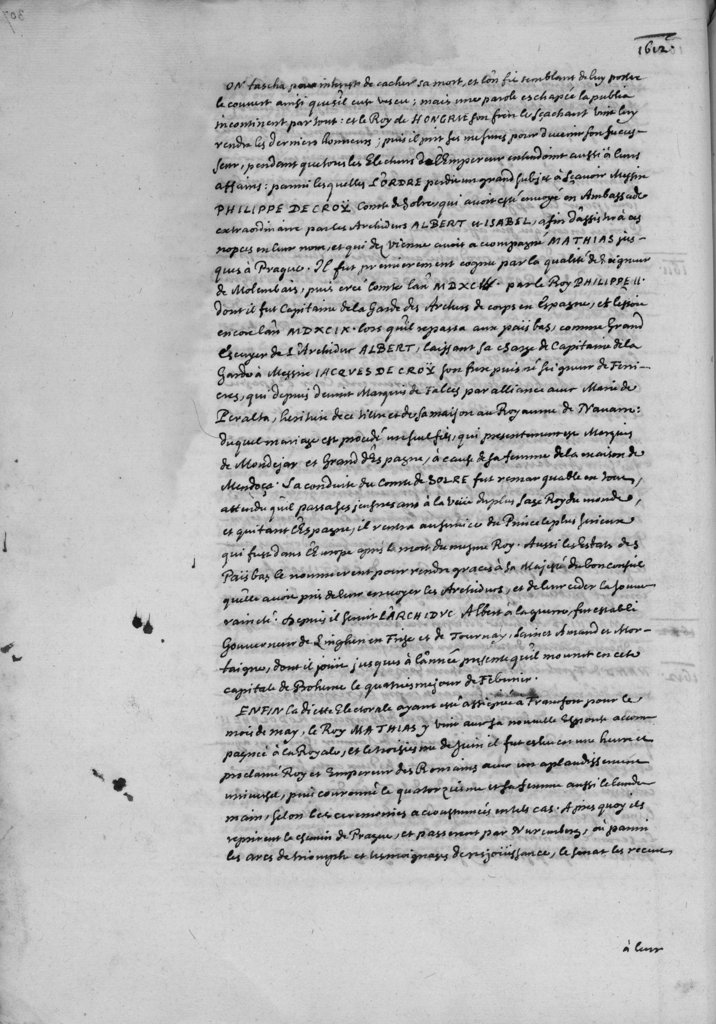 1612.
ON tascha pour interest de cacher sa mort, et l'on fit semblant de luy porter
le couvert ainsi qu'il eut vescu; mais une parole eschapée la publia
incontinent par tout: et le Roy de HONGRIE son frere le sçachant vint luy
rendre les derniers honneurs; puis il prit ses mesures pour devenir son succes-
seur, pendant que tous les Electeurs de l'Empereur entendoint aussi à leurs
affaires: parmi lesquelles L'ORDRE perdit un grand subject à sçavoir Messire
PHILIPPE DE CROŸ Comte de Solre, qui avoit esté envoyé en Ambassade
extraordinaire par les Archiducs ALBERT et ISABEL, afin d'assister à ces
nopces en leur nom, et qui de Vienne avoit accompagné MATHIAS jus-
ques à Prague. Il fut premierement cognu par la qualité de Seigneur
de Molembais, puis creé Comte l'an MDXCII. par le Roy PHILIPPE II.
dont il fut Capitaine de la Garde des Archers de corps en Espagne, et l'estoit
encore l'an MDXCIX. lors qu'il repassa aux païs bas, comme Grand
Escuyer de l'Archiduc ALBERT, laissant sa charge de Capitaine de la
Garde à Messire IACQVES DE CROŸ son frere puisné Seigneur de Feni-
eres, qui depuis devint Marquis de Falces par alliance avec Marie de
Peralta, heritiere de ce tiltre et de sa maison au Royaume de Navarre:
duquel mariage est procedé un seul fils, qui presentement est Marquis
de Mondejar et Grand d'Espagne, à cause de sa femme de la maison de
Mendoça. La conduite du Comte de SOLRE fut remarquable en tout,
attendu qu'il passa ses jeunes ans à la veüe du plus sage Roy du monde,
et quitant l'Espagne, il rentra au service du Prince le plus serieux
qui fust dans l'Europe aprés la mort du mesme Roy. Aussi les Estats des
Païs bas le nommerent pour rendre graces à Sa Majesté du bon conseil
qu'elle avoit pris de leur envoyer les Archiducs, et de leur ceder la souve-
raineté. Depuis il servit L'ARCHIDVC Albert à la guerre, fut establi
Gouverneur de Linghen en Frise et de Tournay, Sainct Amand et Mor-
taigne, dont il joüit jusques à l'année presente qu'il mourut en cete
capitale de Boheme le quatriesme jour de Febvrier.
ENFIN la diette Electorale ayant esté assignée à Francfort pour le
mois de may, le Roy MATHIAS y vint avec sa nouvelle Espouse accom-
pagnée à la Royale, et le troisiesme de Juin il fut esleu en une heure et
proclamé Roy et Empereur des Romains avec un aplaudissement
universel, puis couronné le quatorziesme et sa femme aussi le lende-
main, selon les ceremonies accoustumées en tels cas. Apres quoy ils
reprirent le chemin de Prague, et passerent par Nuremberg, où parmi
les arcs de triomphe et tesmoignages de resjoüissance, le senat les receut
à leur